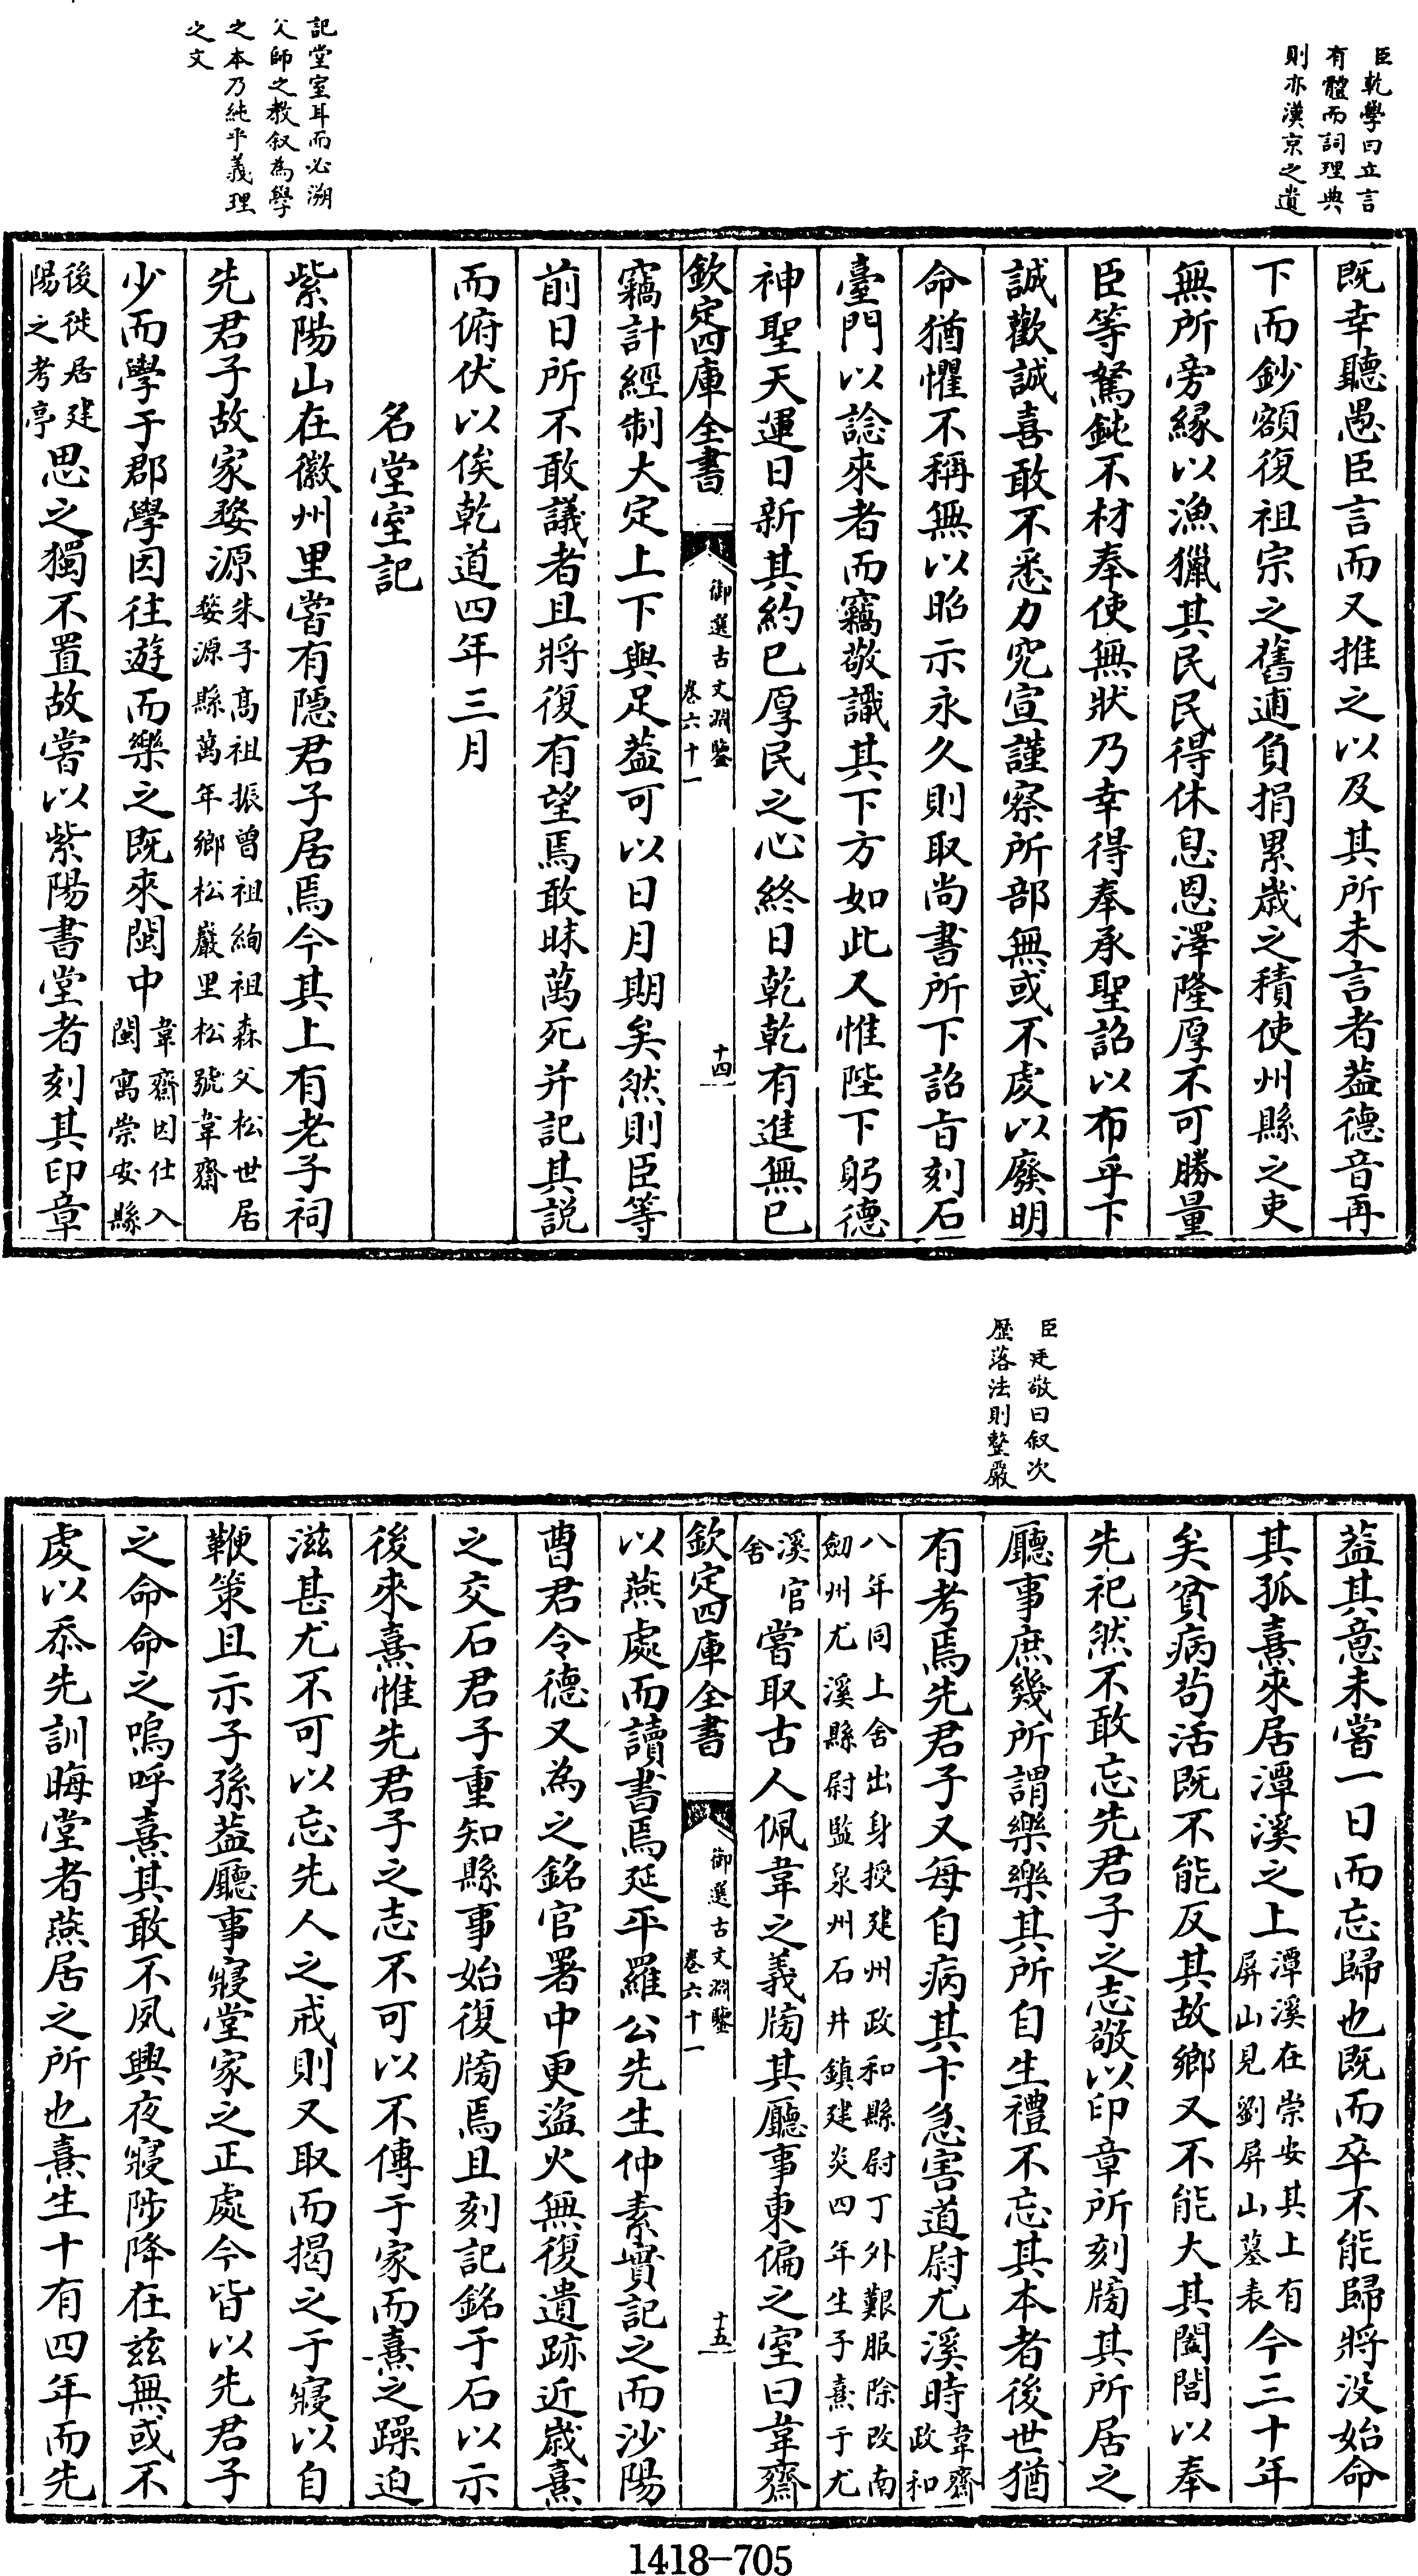 臣乾學曰立言
有體而詞理典
則亦漢京之遺
記堂室耳而必溯
父師之教叙為學
之本乃純乎義理
之文
既幸聽愚臣言而又推之以及其所未言者葢德音再
下而鈔額復祖宗之舊逋負捐累歲之積使州縣之吏
無所旁緣以漁獵其民民得休息恩澤隆厚不可勝量
臣等駑鈍不材奉使無狀乃幸得奉承聖詔以布乎下
誠歡誠喜敢不悉力究宣謹察所部無或不虔以廢明
命猶懼不稱無以昭示永久則取尚書所下詔㫖刻石
臺門以諗來者而竊敬識其下方如此又惟陛下躬德
神聖天運日新其約已厚民之心終日乾乾有進無已
欽定四庫全書
御選古文淵鑒
卷六十一
十四
竊計經制大定上下與足葢可以日月期矣然則臣等
前日所不敢議者且將復有望焉敢昧萬死并記其説
而俯伏以俟乾道四年三月
名堂室記
紫陽山在徽州里嘗有隠君子居焉今其上有老子祠
先君子故家婺源朱子髙祖振曾祖絢祖森父松世居
婺源縣萬年鄉松巖里松號韋齋
少而學于郡學因往遊而樂之既來閩中韋齋因仕入
閩寓崇安縣
後徙居建
陽之考亭思之獨不置故嘗以紫陽書堂者刻其印章
臣廷敬曰叙次
歴落法則整嚴
葢其意未嘗一日而忘歸也既而卒不能歸將没始命
其孤熹來居潭溪之上潭溪在崇安其上有
屏山見劉屏山墓表今三十年
矣貧病苟活既不能反其故鄉又不能大其闔閭以奉
先祀然不敢忘先君子之志敬以印章所刻牓其所居之
廳事庶幾所謂樂樂其所自生禮不忘其本者後世猶
有考焉先君子又每自病其卞急害道尉尤溪時韋齋
政和
八年同上舍出身授建州政和縣尉丁外艱服除改南
劒州尤溪縣尉監泉州石井鎮建炎四年生子熹于尤
溪官
舍嘗取古人佩韋之義牓其廳事東偏之室曰韋齋
欽定四庫全書
御選古文淵鑒
卷六十一
十五
以燕處而讀書焉延平羅公先生仲素實記之而沙陽
曹君令德又為之銘官署中更盜火無復遺跡近歳熹
之交石君子重知縣事始復牓焉且刻記銘于石以示
後來熹惟先君子之志不可以不傳于家而熹之躁迫
滋甚尤不可以忘先人之戒則又取而揭之于寢以自
鞭策且示子孫葢廳事寢堂家之正處今皆以先君子
之命命之嗚呼熹其敢不夙興夜寢陟降在兹無或不
虔以忝先訓晦堂者燕居之所也熹生十有四年而先
1418-705